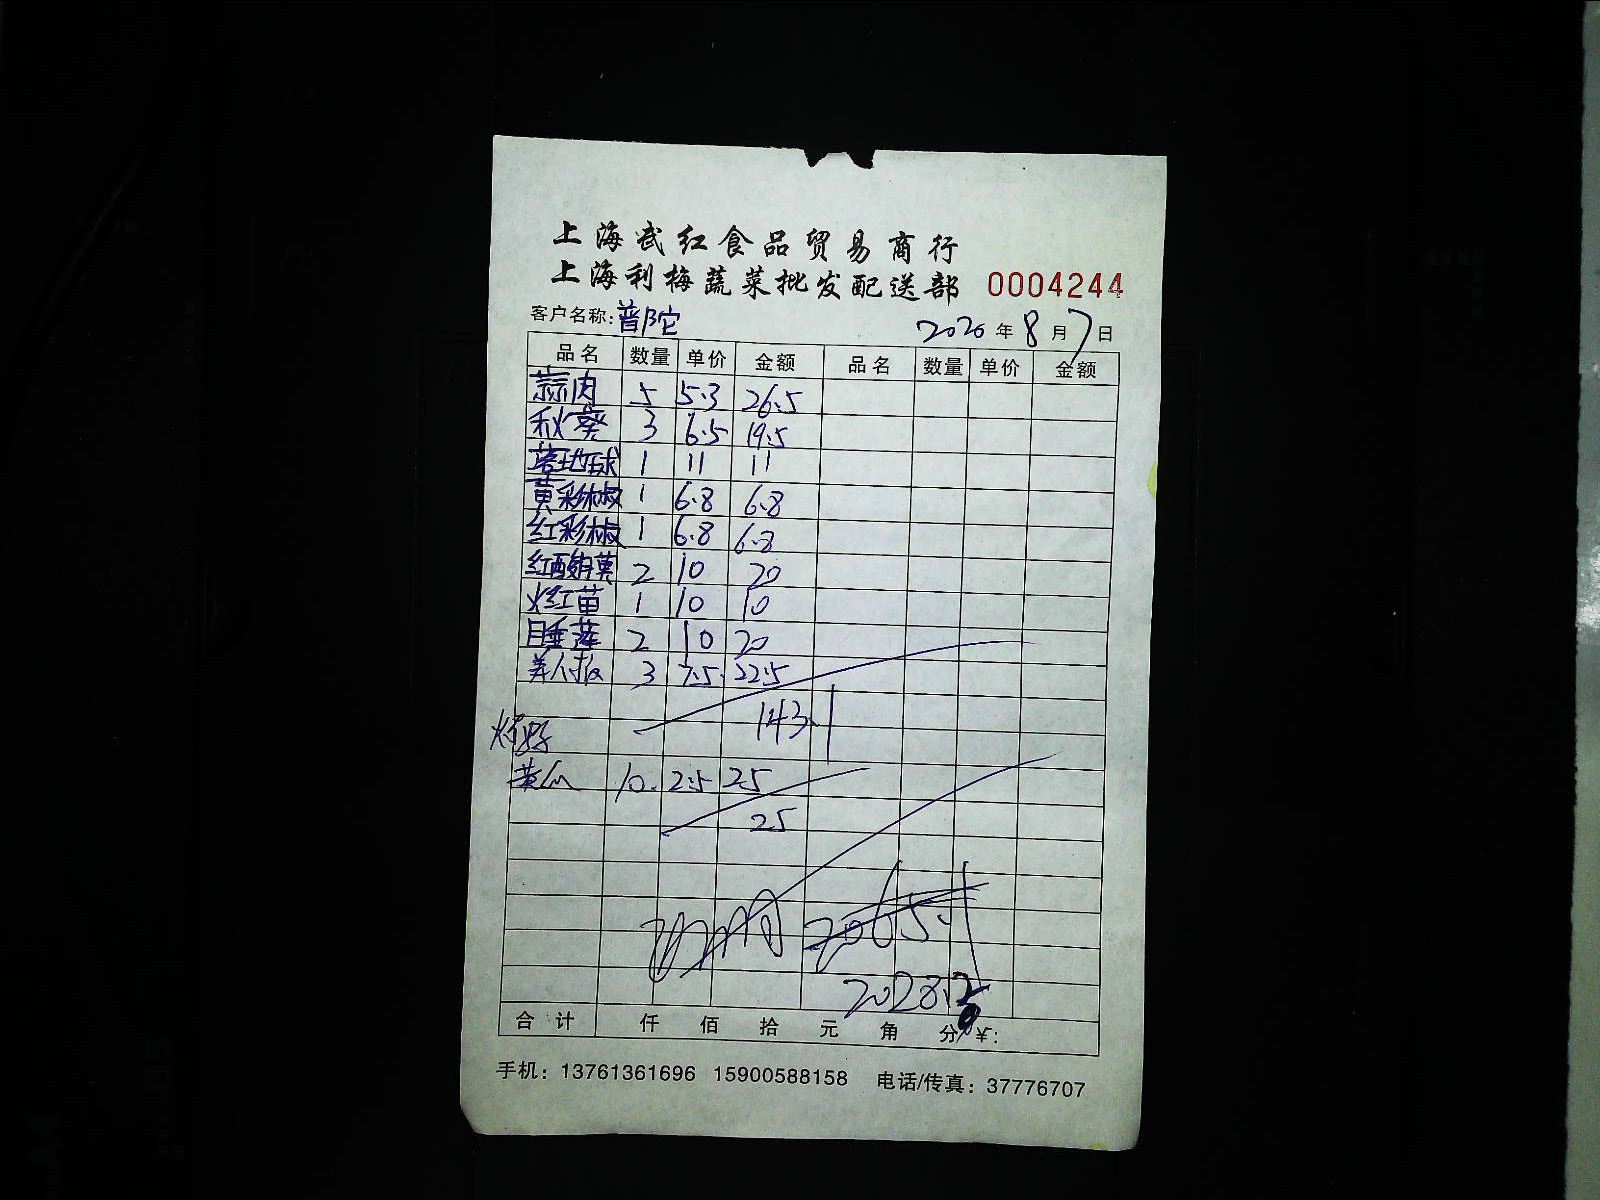 上海武红食品贸易商行
上海利梅蔬菜批发配送部 0004244
客户名称:普陀 2020年8月7日
品名 数量 单价 金额 品名 数量 单价 金额
蒜肉 5 5.3 26.5
秋葵 3 6.5 19.5
地球 1 11 11
黄彩椒 1 6.8 6.8
红彩椒 1 6.8 6.8
红酸 2 10 20
红苗 1 10 10
睡莲 2 10 20
美人 3 7.5 22.5
143.1
黄瓜 10 2.5 25
25
2065.1
2028.
合计 仟 佰 拾 元 角 分 ¥:
手机：13761361696 15900588158 电话/传真：37776707